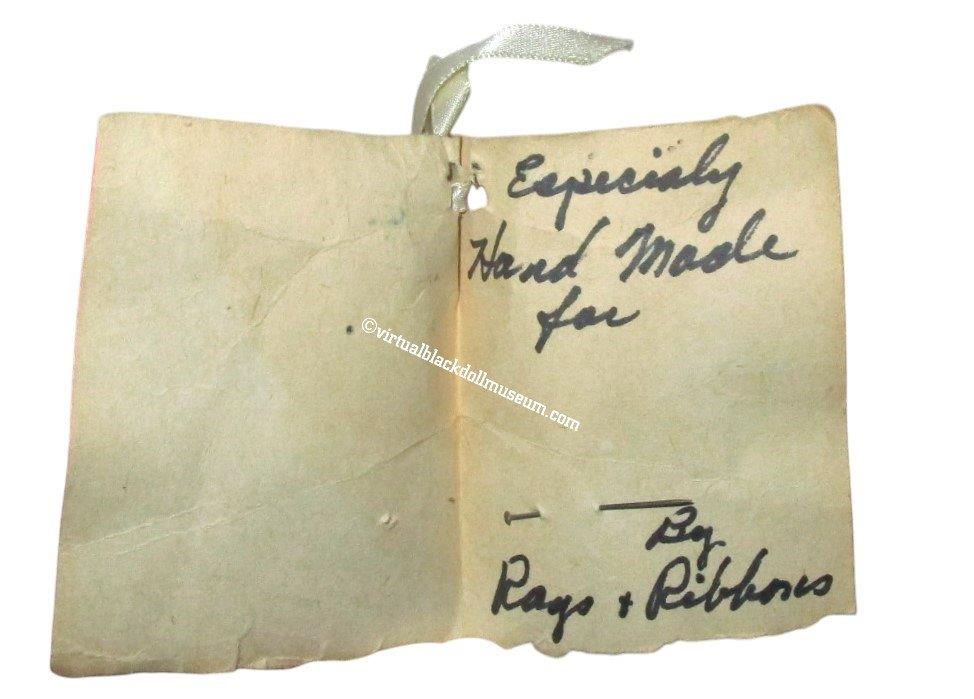 Especialy
Hand Made
for
©virtualblackdollmuseum.com
By
Rags + Ribbons